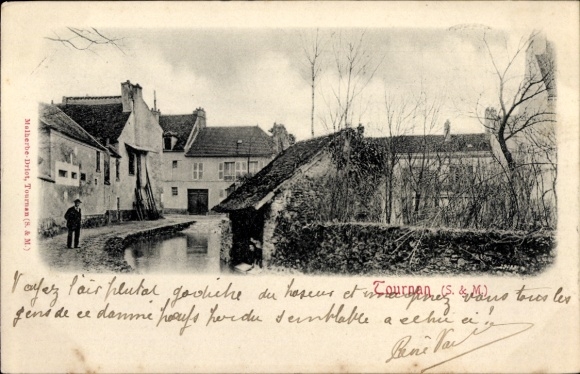 Malherbe Driot, Tournan (S. & M.)
Tournan (S. & M.)
Voyez l'air plutot godiche du hoseur et imaginez vous tous les
gens de ce damné pays perdu semblable a celui ci !